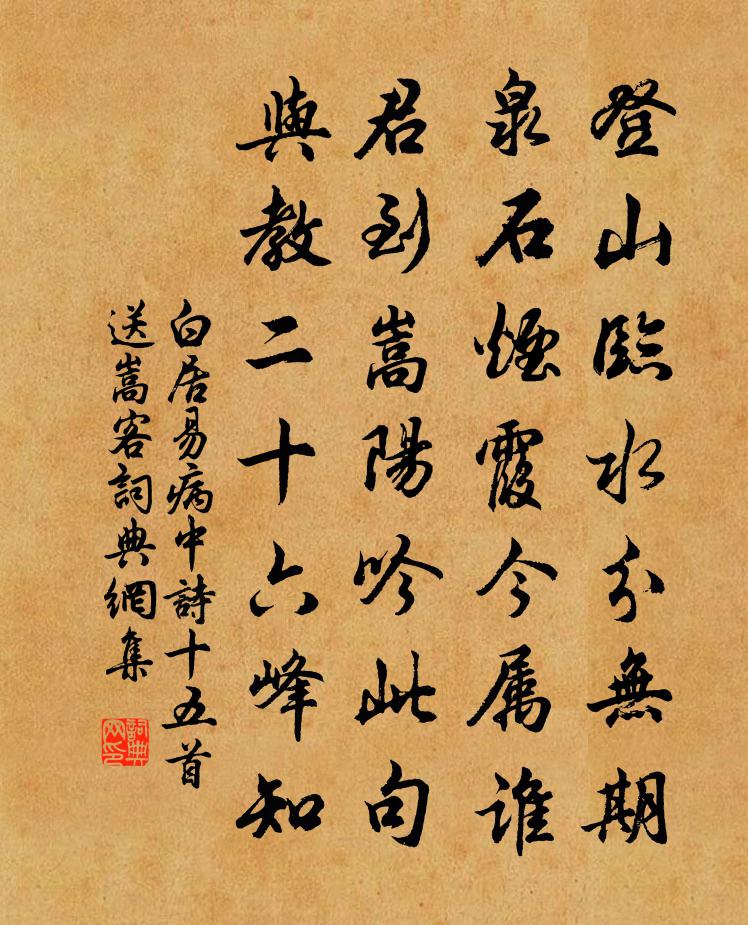 登山臨水分無期
泉石煙霞今属誰
君到嵩陽吟此句
與教二十六峰知
白居易病中詩十五首
送嵩客詞典網集
詞典
网印